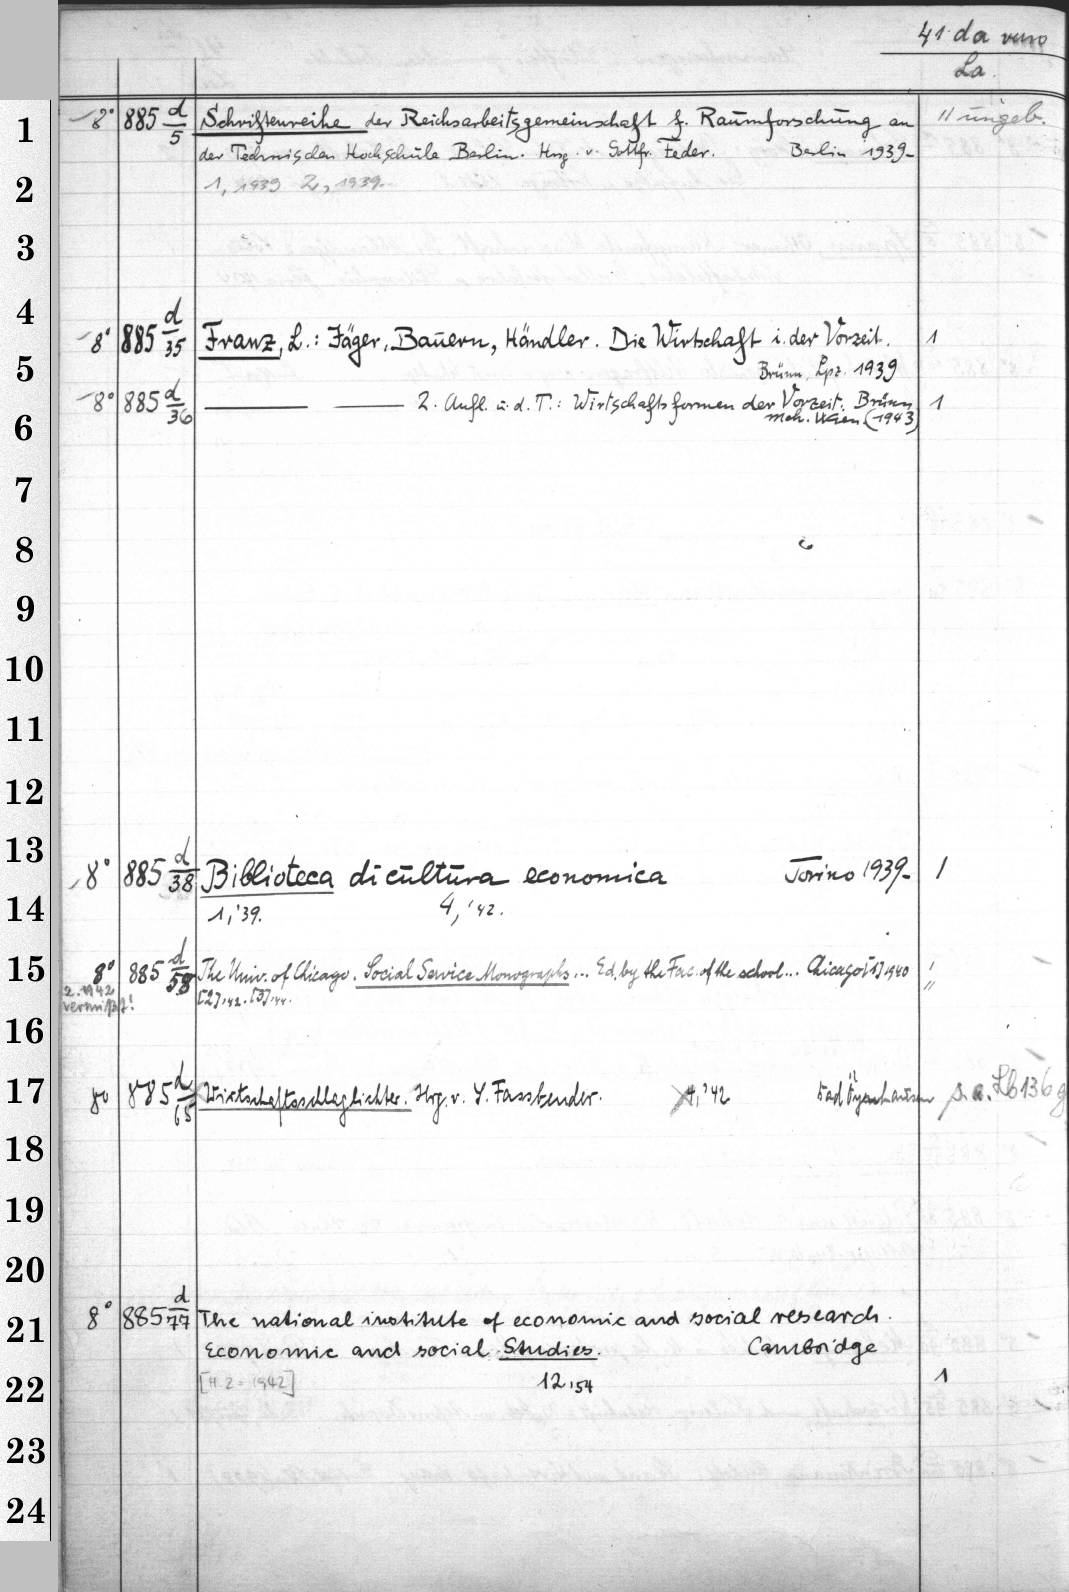 41 da
La.
1 8° 885 d/5 Schriftenreihe der Reichsarbeitsgemeinschaft f. Raumforschung an 11 ungeb.
der Technischen Hochschule Berlin. Hrsg. v. Gottfr. Feder. Berlin 1939-
2 1, 1939 2, 1939-
3
4
8° 885 d/35 Franz, L.: Jäger, Bauern, Händler. Die Wirtschaft i. der Vorzeit. 1
5 Brünn, Lpz. 1939
8° 885 d/36 2. Aufl. u. d. T.: Wirtschaftsformen der Vorzeit. Brünn 1
6 (1943)
7
8
9
10
11
12
13
8° 885 d/38 Biblioteca di cultura economica Torino 1939- 1
14 1,'39. 4,'42.
15 8° 885 d/58 The Univ. of Chicago. Social Service Monographs... Ed. by the Fac. of the school... Chicago [1] 1940 "
2. 1942 [2],42. [3],44.
vermißt!
16
17 8° 885 d/65 Wirtschaftsschlaglichter. Hrg. v. Y. Fassbender. 4,'42 Bad Öynhausen s. a. Lb 136 g
18
19
20
21 8° 885 d/77 The national institute of economic and social research.
Economic and social Studies. Cambridge
22 [H. 2 = 1942] 12,54 1
23
24